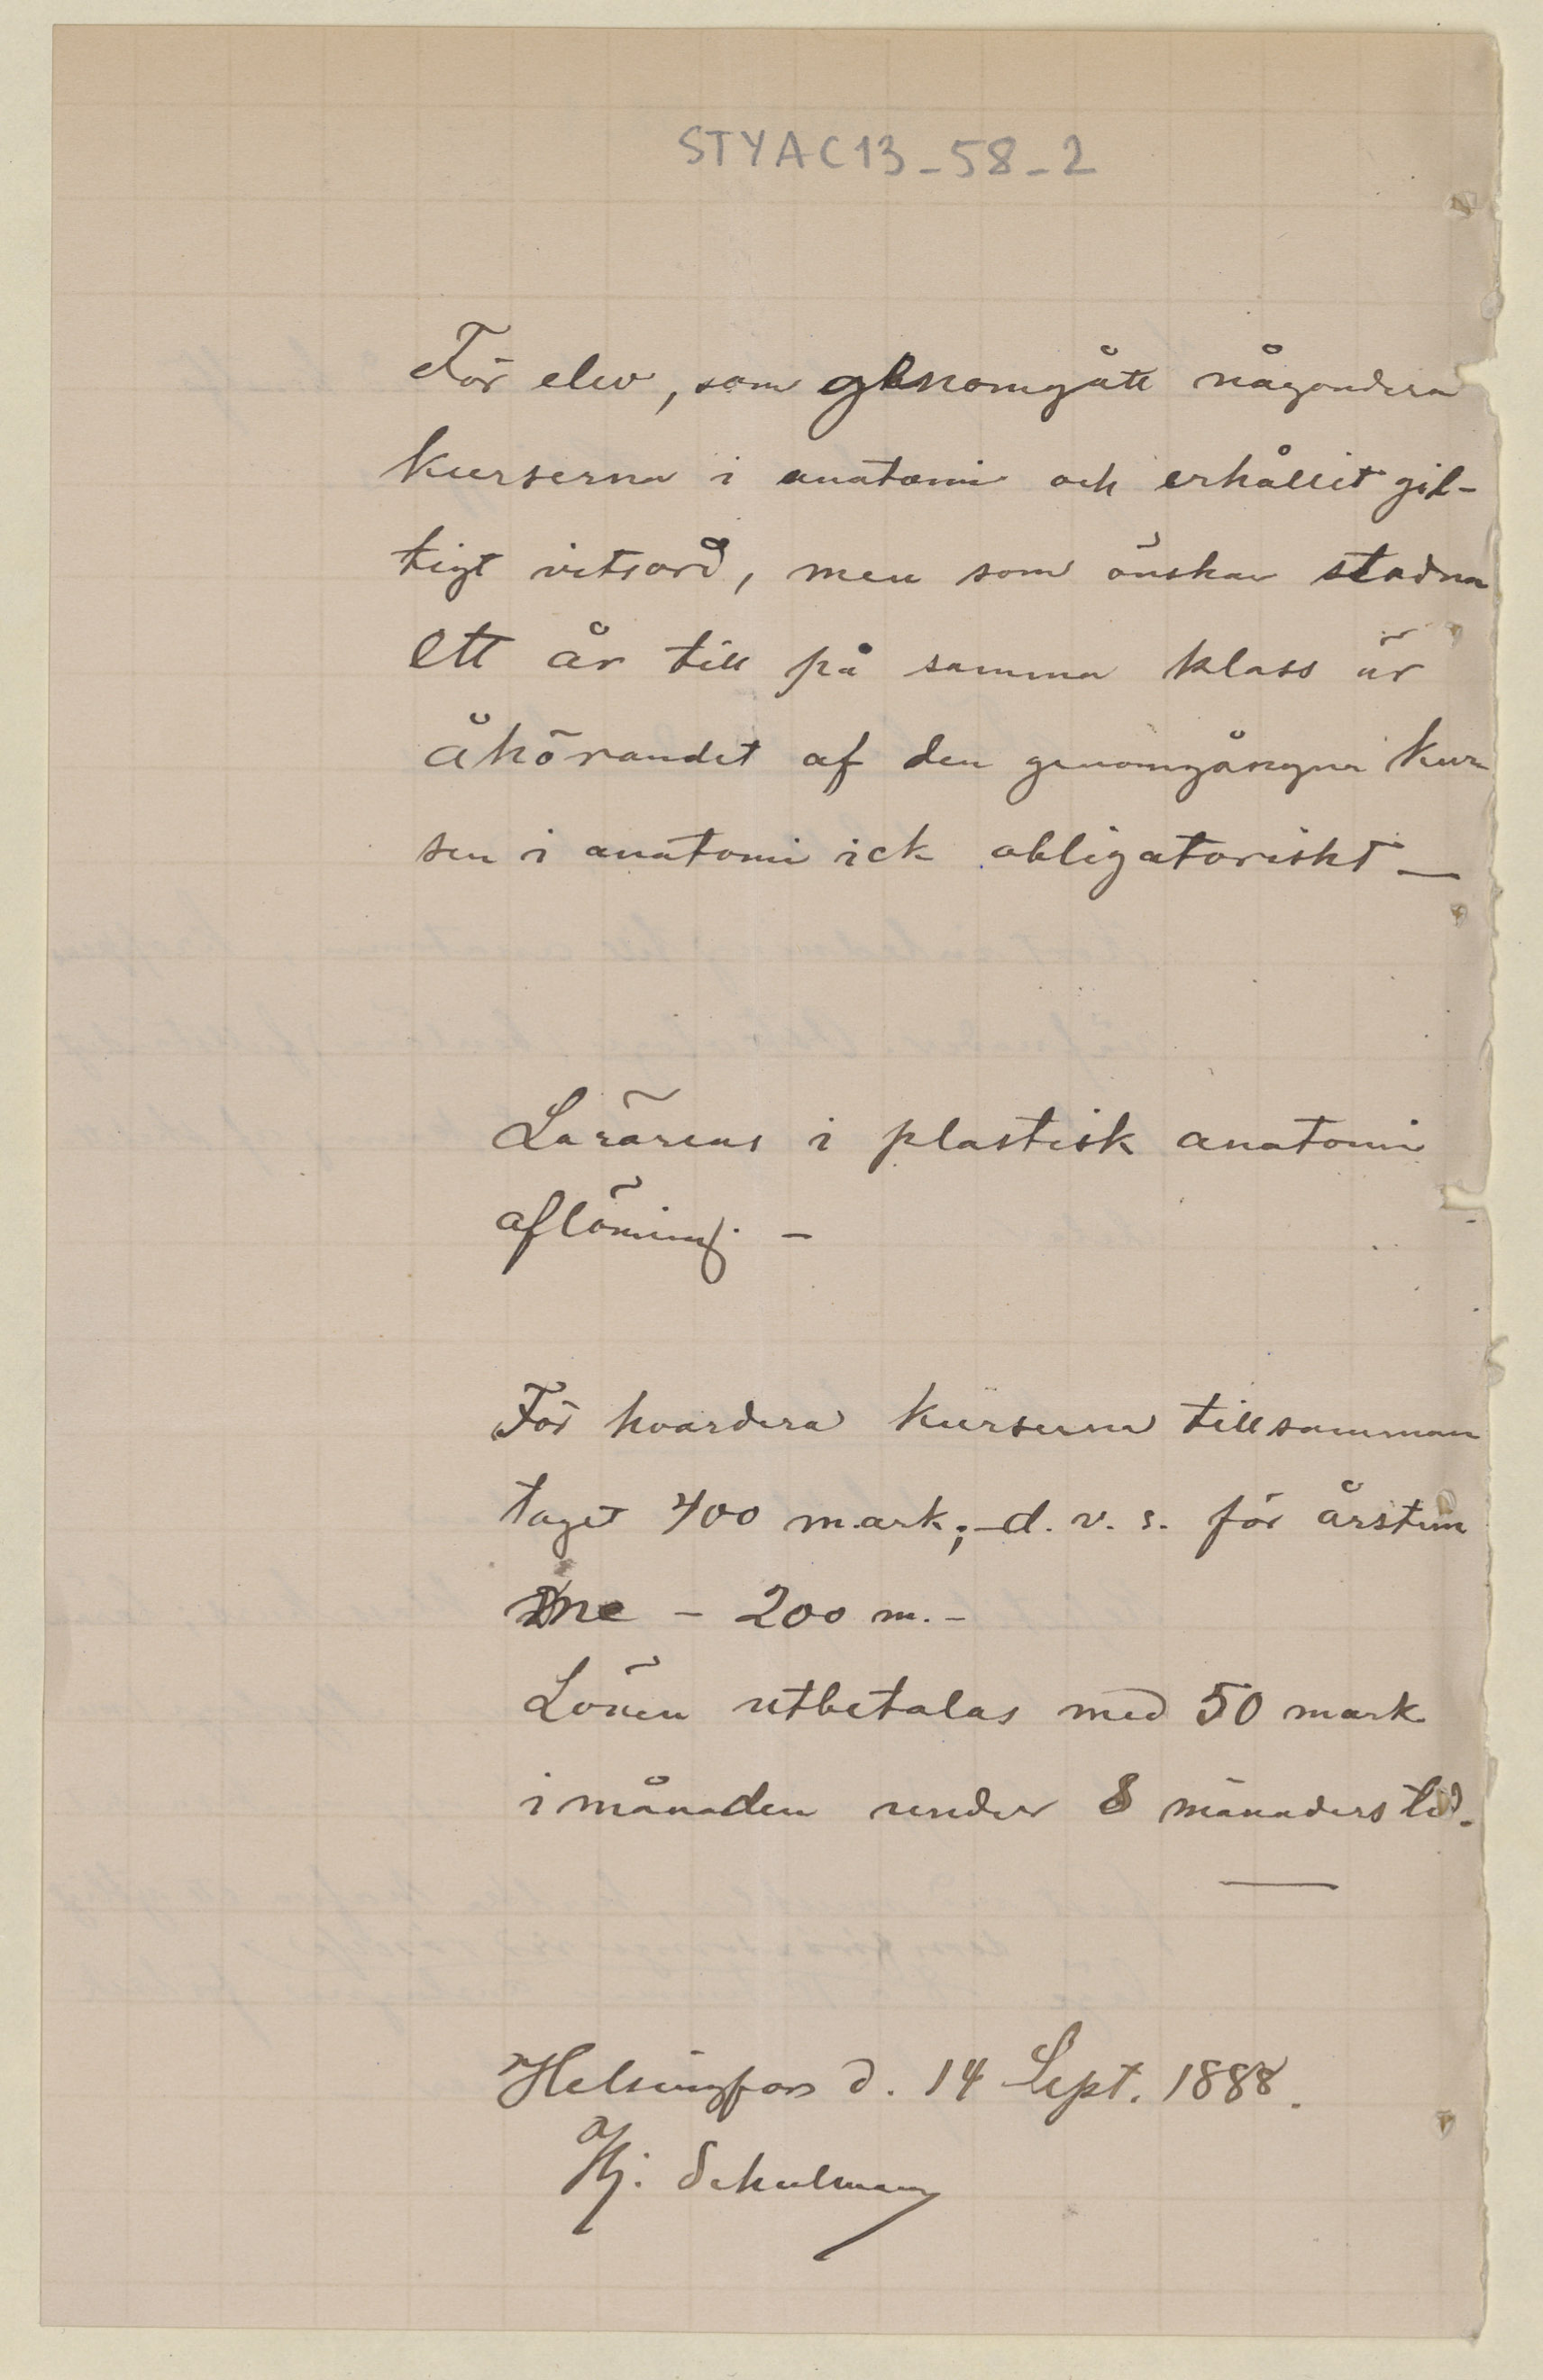 STYAC13_58_2
För elev, som genomgått någondera
kurserna i anatomi och erhållit gil-
tigt vitsord, men som önskar stadna
ett år till på samma klass är
åhörandet af den genomgångna kur
sen i anatomi ick obligatoriskt _
Lärarens i plastisk anatomi
aflöning. -
För hvardera kurserna tillsamman
taget 400 mark; - d. v. s. för årstim
me - 200 m. -
Lönen utbetalas med 50 mark
i månaden under 8 månaders tid.
Helsingfors d. 14 Sept. 1888.
Hj. Schulman